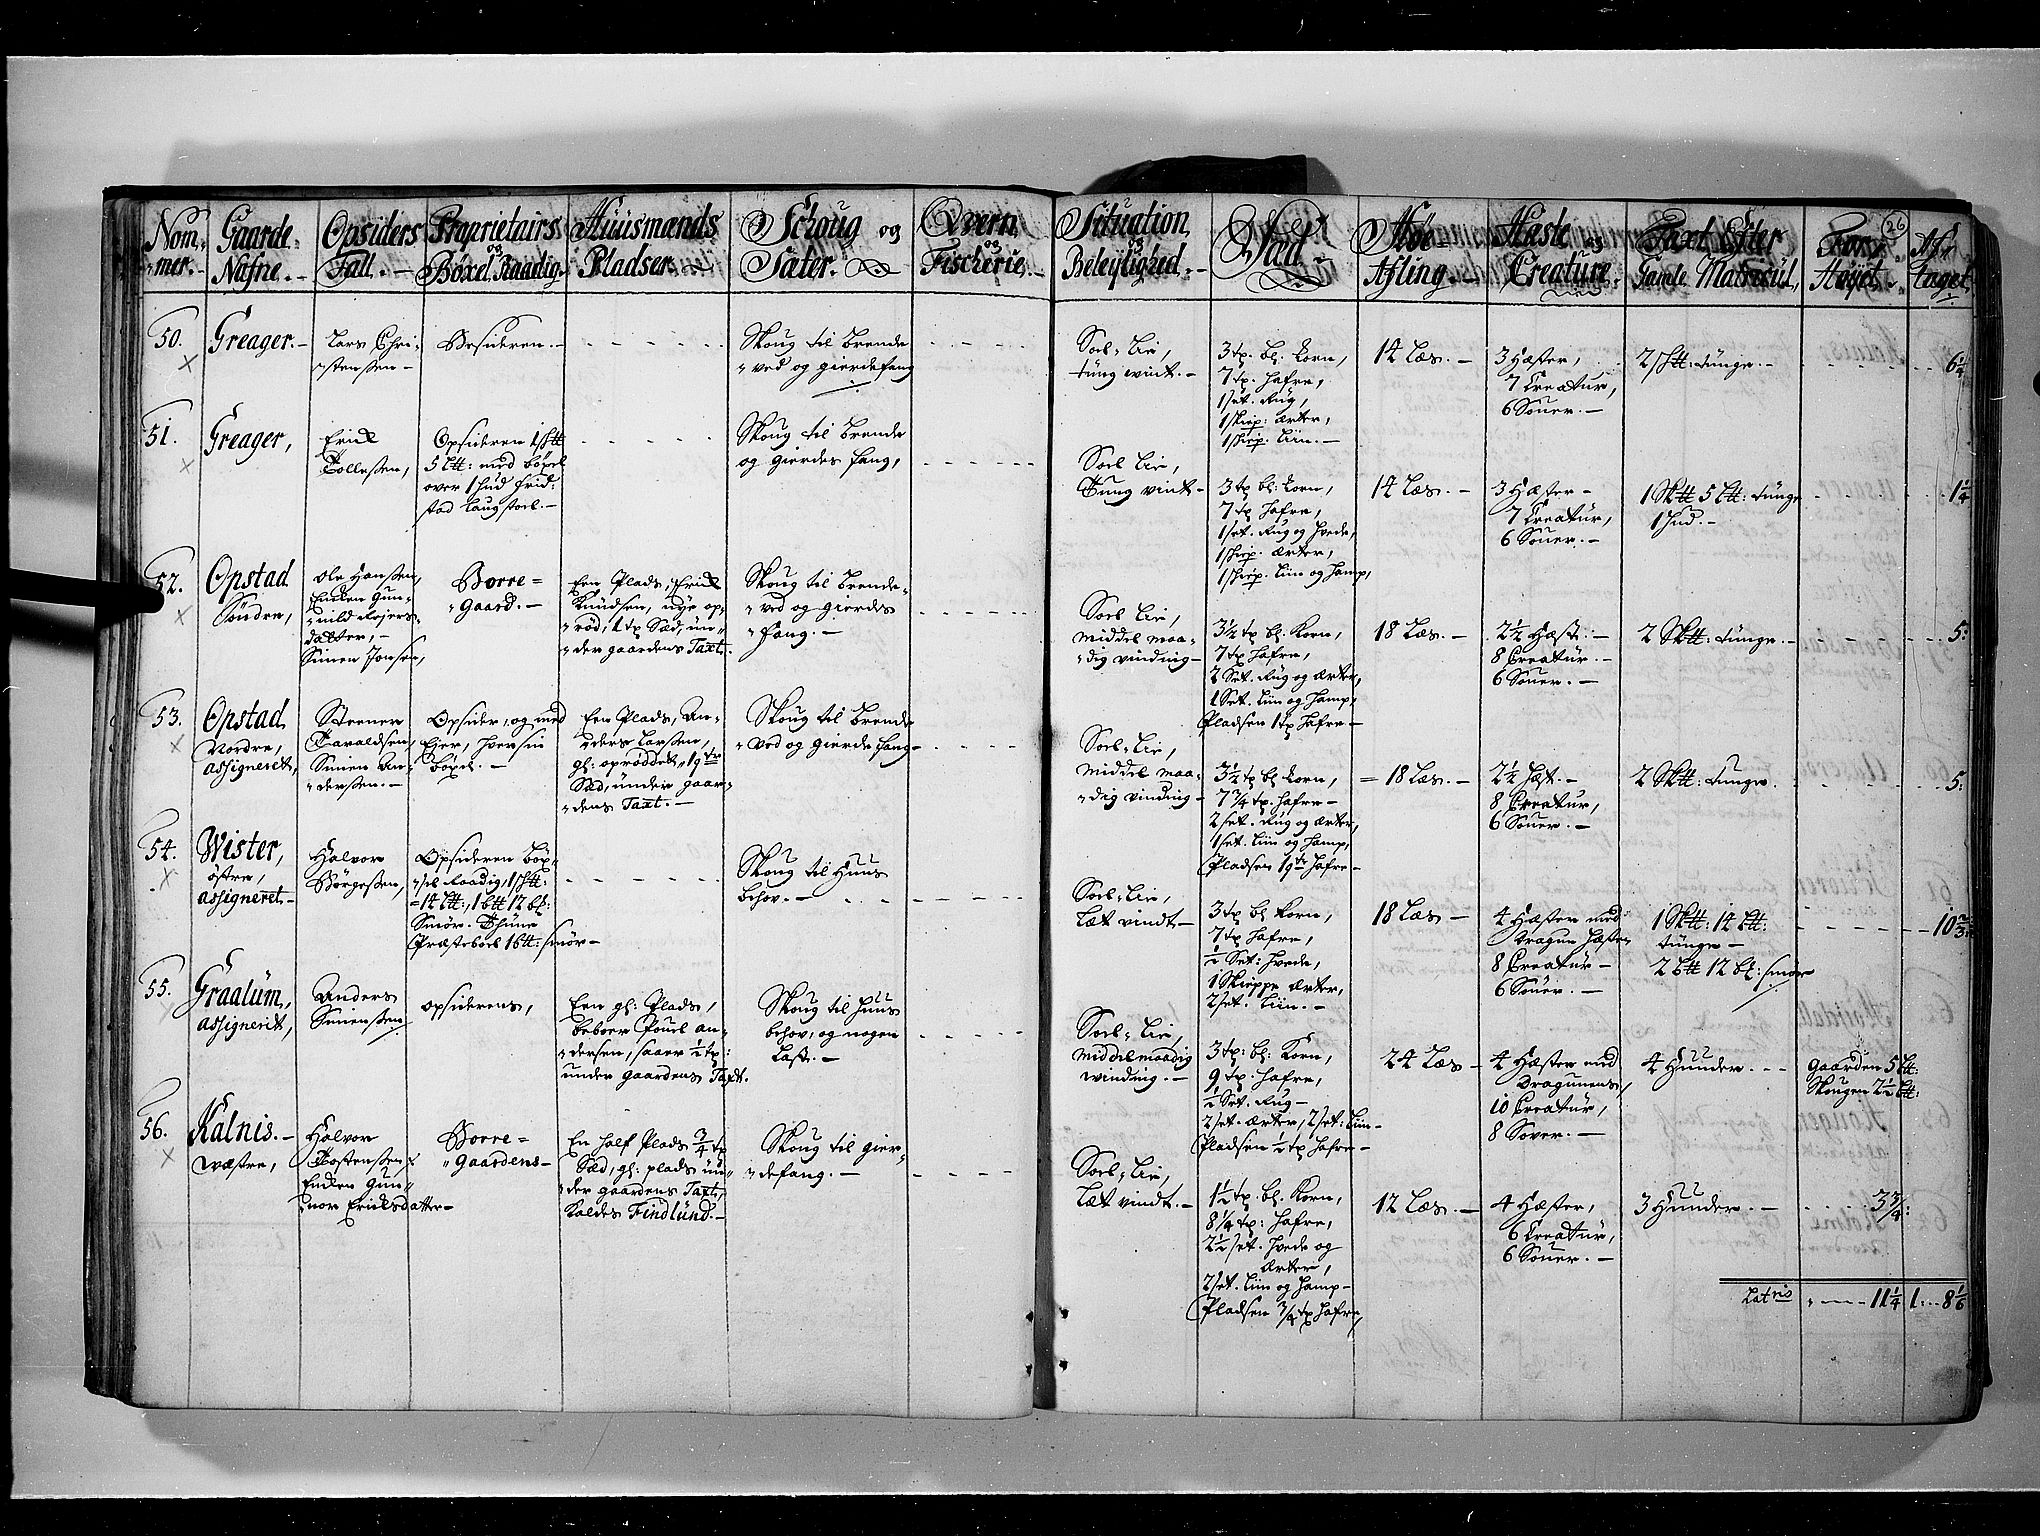 Nom-
mer.
Gaarde-
Nafne.
Opsiders
Tall.
Proprietairs
og
Bøxel Raadig.
Huusmands
Pladser.
Schoug og
Sæter.
Qvern
og
Fischerie.
Situation
og
Beleylighed.
Sæd.
Høe-
Afling.
Hæste og
Creature.
Taxt Efter
Gamle Matricul.
For-
Høyet.
26
Af-
taget.
50.
Greager.
Lars Chri-
stensen
Besideren.
Skoug til brende
ved og gierdefang
Soel-Lie,
tung vint.
3 tp. bl: Korn,
7 tp. hafre,
1 set. Rug,
1 skiep: ærter,
1 skiep. Liin.
14 Læs.
3 Hæster,
7 Creatur,
6 Souer.
2 sk℔: tunge.
6 1/4
51.
Greager,
Erick
Tollessen,
Opsideren 1 sk℔
5 L℔: med bøxel
over 1 hud Frid-
stad Laugstoel.
Skoug til brende
og gierdes fang,
Soel Lie,
Tung vint
3 tp bl: Korn,
7 tp hafre,
1 set. Rug og hvede,
1 skiep. ærter,
1 skiep. Liin og hamp,
14 Læs.
3 Hæster
7 Creatur,
6 Souer.
1 Sk℔ 5 L℔: tunge
1 hud.
1 1/4
52.
Opstad
Søndre,
Ole Hansen,
Encken Gun-
nild Rejers-
datter,
Simen Jonsen,
Borre-
Gaard.
Een Plads, Erick
Knudsen, nye op-
rød, 1 tp Sæd, un-
der gaardens Taxt.
Skoug til brende-
ved og gierdes
fang.
Soel Lie,
middel maa-
dig vinding
3 1/2 tp bl: Korn,
7 tp hafre,
2 Set. Rug og ærter,
1 Set. Liin og hamp,
Pladsen 1 tp hafre
18 Læs.
2 1/2 Hæst.
8 Creatur.
6 Souer.
2 Sk℔: tunge.
5:
53.
Opstad
Nordre,
assigneret,
Steener
Taraldsen,
Simen An-
dersen.
Opsider, og med
Ejer, hversin
bøxel.
Een Plads, An-
ders Larssen,
gl: oprøddet, 1 qtr
Sæd, under gaar-
dens Taxt.
Skoug til brende
ved og gierde fang
Soel-Lie,
middel maa-
dig vinding
3 1/2 tp bl Korn,
7 3/4 tp. hafre
2 set. Rug og ærter,
1 set. Liin og hamp,
Pladsen 1 qtr hafre
18 Læs.
2 1/2 hæst.
8 Creatur,
6 Souer.
2 Sk℔: tunge.
5:
54.
Wister,
østre,
assigneret
Halvor
Børgessen,
Opsideren bøx-
sel Raadig, 1 sk℔:
14 L℔:, 1 b℔ 12 bl:
Smør. Thune
Præsteboel 16℔: smør
Skoug til Huus
behov.
Soel-Lie,
Læt vindt
3 tp bl Korn,
7 tp hafre,
1/2 Set: hvede,
1 Skieppe ærter,
2 set. Liin.
18 Læs
4 Hæster med
Dragun hæsten
8 Creatur
6 Souer.
1 Sk℔: 14 L℔:
tunge
2 b℔ 12 bl: smør
10 2/3
55.
Graalum,
assignerit,
Anders
Simenssen
opsiderens,
Een gl: Plads,
beboer Pouel An-
dersen, saaer 1/2 tp:
under gaardens Taxt.
Skoug til huus
behov, og nogen
Last.
Soel-Lie,
middelmaadig
winding.
3 tp: bl: Korn,
9 tp. hafre,
1/2 Set. Rug
2 set. ærter, 2 set: Liin
Pladsen 1/2 tp hafre
24 Læs
4 Hæster med
Dragunens,
10 Creatur,
8 Sover.
4 Hunder.
Gaarden 5 L℔:
Skougen 2 1/2 L℔:
56.
Kalnis.
wæstre,
Halvor
Tostenssen
Encken Gun-
nor Ericksdatter
Borre-
Gaardens
En half Plads 3/4 tp
Sæd, gl: plads un-
der gaardens Taxt,
Kaldes Findlund.
Skoug til gier-
defang.
Soel-Lie,
Læt vindt.
1 1/2 tp. bl. Korn,
8 1/4 tp: hafre,
2 1/2 set. hvede og
ærter,
2 set. Liin og hamp
Pladsen 3/4 tp hafre,
12 Læs.
4 Hæster,
6 Creatur,
6 Souer.
3 Hunder.
3 3/4:
Latris
11 1/4
1. 8 1/6